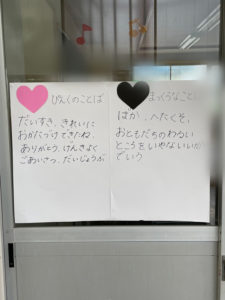 ぴんくのことば
だいすき、きれいに
おかたづけできたね、
ありがとう、げんきよく
ごあいさつ、だいじょうぶ
まっくろなことば
ばか、へたくそ、
おともだちのわるい
ところをいやないいかた
でいう